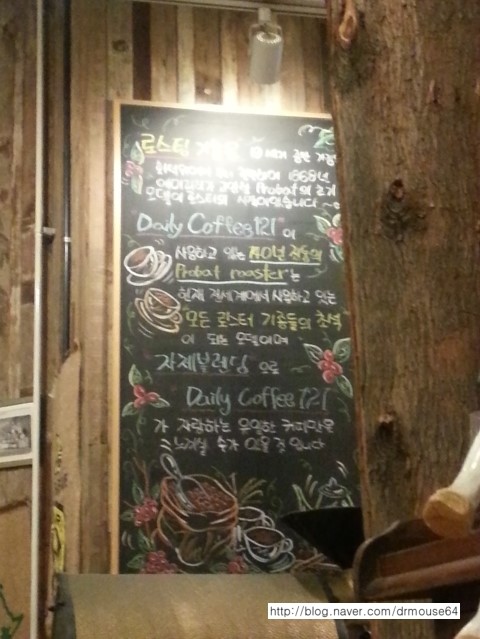 로스팅
1868년
Probat의 초기
모델이 로스터의
Daily Coffee 121 이
사용하고 있는 40년 전통의
Probat roaster는
현재 전세계에서 사용하고 있는
모든 로스터 기종들의 초석
이 되는 모델이며
자체블렌딩 으로
Daily Coffee 121
가 자랑하는 유일한 커피맛을
느끼실 수가 있을 것 입니다
http://blog.naver.com/drmouse64